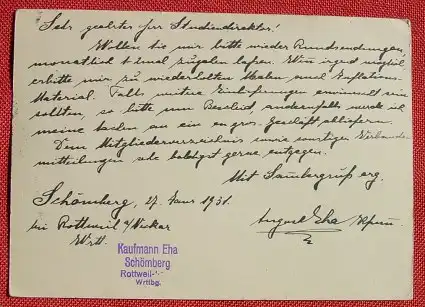 Sehr geehrter Herr Studiendirektor!
Wollen Sie mir bitte wieder Rundsendungen,
monatlich 1 mal zugehen lassen. Wenn irgend möglich
erbitte mir zu wiederholten Malen auch Inflations-
Material. Falls weitere Einlieferungen erwünscht sein
sollten, so bitte um Bescheid, andernfalls werde ich
meine Sachen an ein en gros. Geschäft abliefern.
Dem Mitgliederverzeichnis sowie sonstigen Verbands-
mitteilungen sehe baldigst gerne entgegen.
Mit Sammlergruß erg.
Schömberg, 27. Janr 1931.
bei Rottweil a/Neckar
Wrtt.
August Eha
Kaufmann Eha
Schömberg
Rottweil-
Wrttbg.